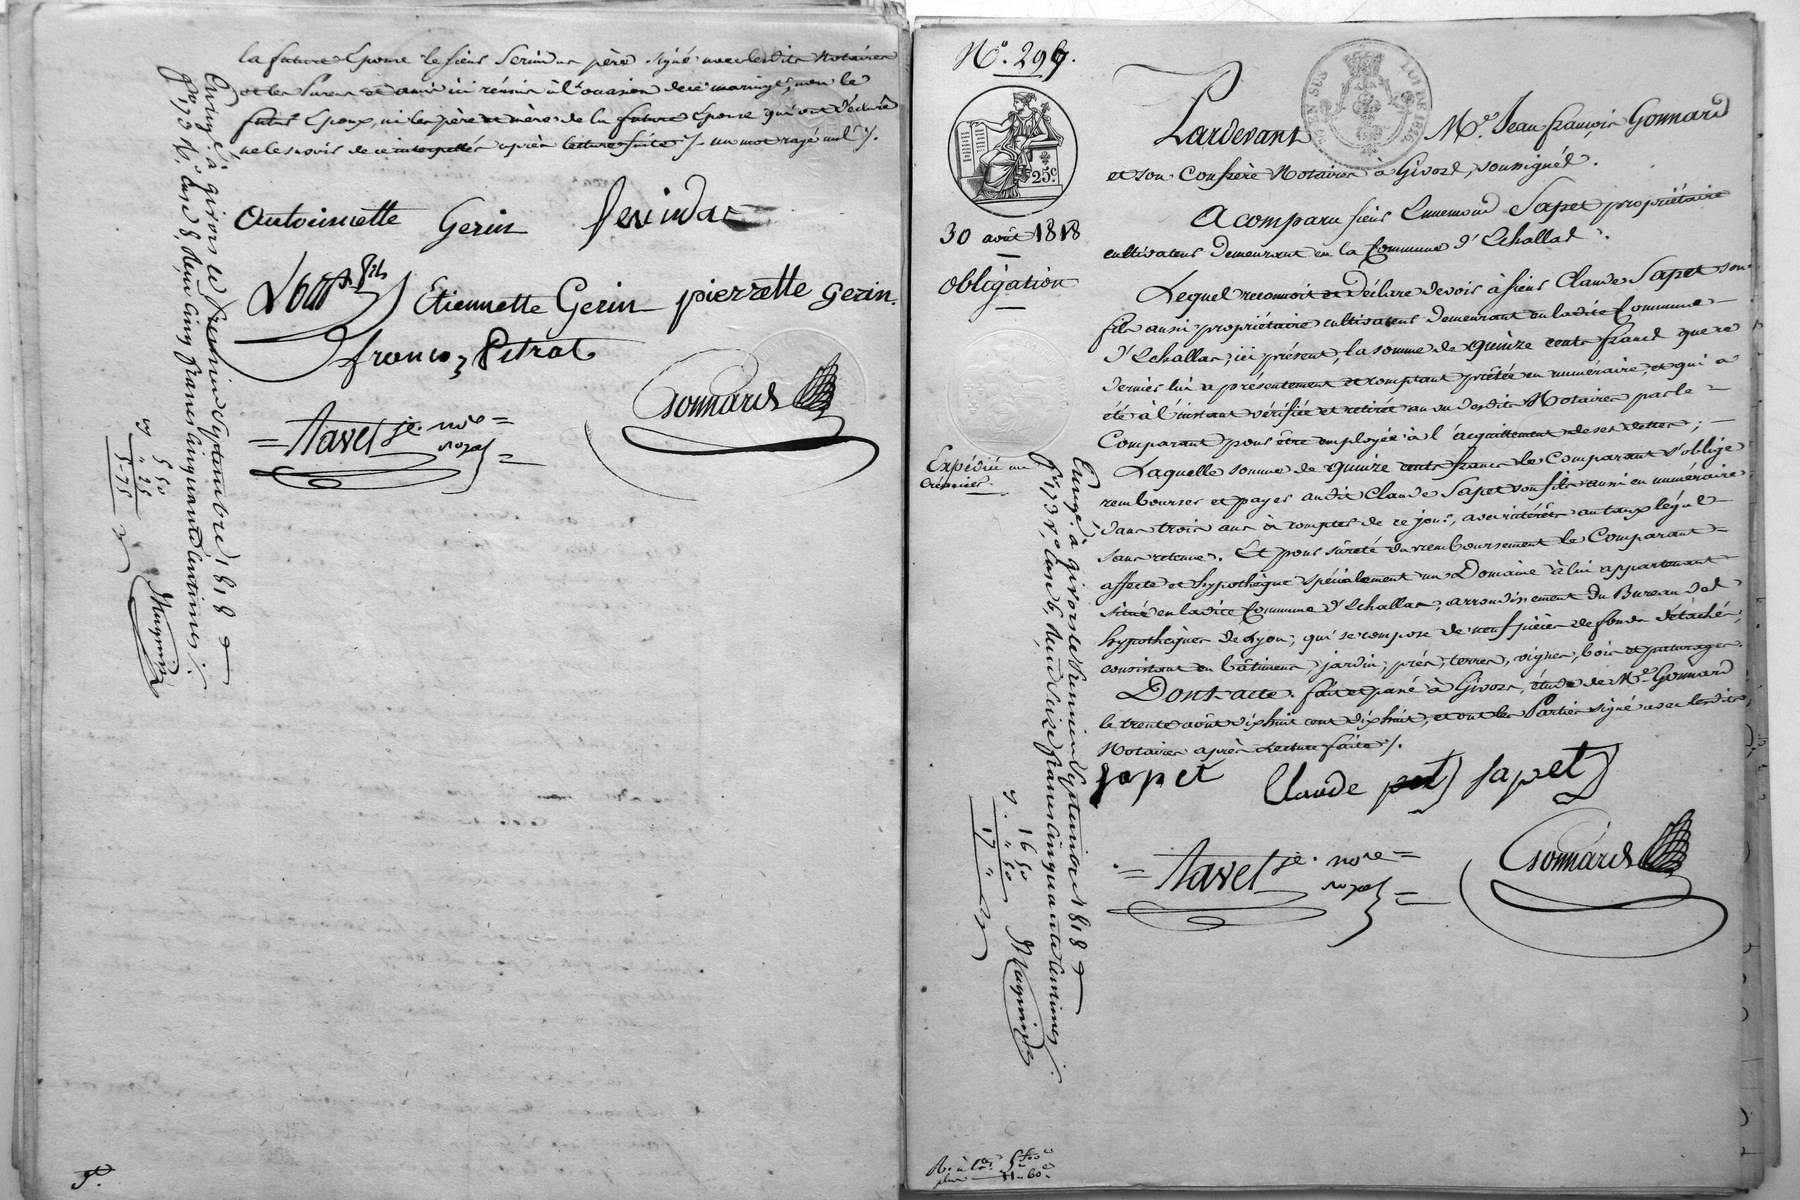 la future Epouse le sieur Serindas père signé avec lesdits Notaires
et les Parens et amis ici réunis à l'occasion de ce mariage, non le
futur Epoux, ni les père et mère de la future Epouse qui ont déclaré
ne le savoir de ce interpellés après lecture faite /. un mot rayé nul /.
Antoinette Gerin Serindas
fils
Etiennette Gerin pierrette Gerin.
francois Pitrat
Gonnard
= Tavel je. nore =
royal =
Enregé. à givors le premier Septembre 1818
fo. 173 Ro. case 8, reçu cinq francs cinquante centimes /.
5 50
" 25
5-75
Magnin
No. 297.
25c.
30 août 1818
Obligation
Expédié au
Créancier.
Pardevant Me. Jean françois Gonnard
et son Confrère Notaires à Givors, soussignés.
A comparu sieur Ennemond Sapet propriétaire
cultivateur demeurant en la Commune d'Echallas.
Lequel reconnoit et déclare devoir à sieur Claude Sapet son
fils aussi propriétaire cultivateur demeurant en ladite Commune
d'Echallas, ici présent, la somme de quinze cents francs que ce
dernier lui a présentement et comptant prêtée en numéraire, et qui a
été à l'instant vérifiée et retirée au vu desdits Notaires par le
Comparant pour être employée à l'acquittement de ses dettes ;
Laquelle somme de quinze cents francs le Comparant s'oblige
rembourser et payer audit Claude Sapet son fils aussi en numéraire
dans trois ans à compter de ce jour, avec intérêts au taux légal
sans retenue. Et pour sûreté du remboursement le Comparant =
affecte et hypothèque spécialement un Domaine à lui appartenant
situé en ladite Commune d'Echallas, arrondissement du Bureau des
hypothèques de Lyon, qui se compose de neuf pièces de fonds détachés,
consistant en bâtimens, jardin, prés, terres, vignes, bois et paturages.
Dont acte. fait et passé à Givors, étude de Me. Gonnard
le trente août dix huit cent dix huit, et ont les Parties signé avec lesdits
Notaires après lecture faite /.
Sapet Claude Sapet
= Tavel je. nore =
royal =
Gonnard
Enregé. à givors le premier Septembre 1818
fo. 173 Vo. case 6, reçu seize francs cinquante centimes /.
16 50
" 50
17 "
Magnin